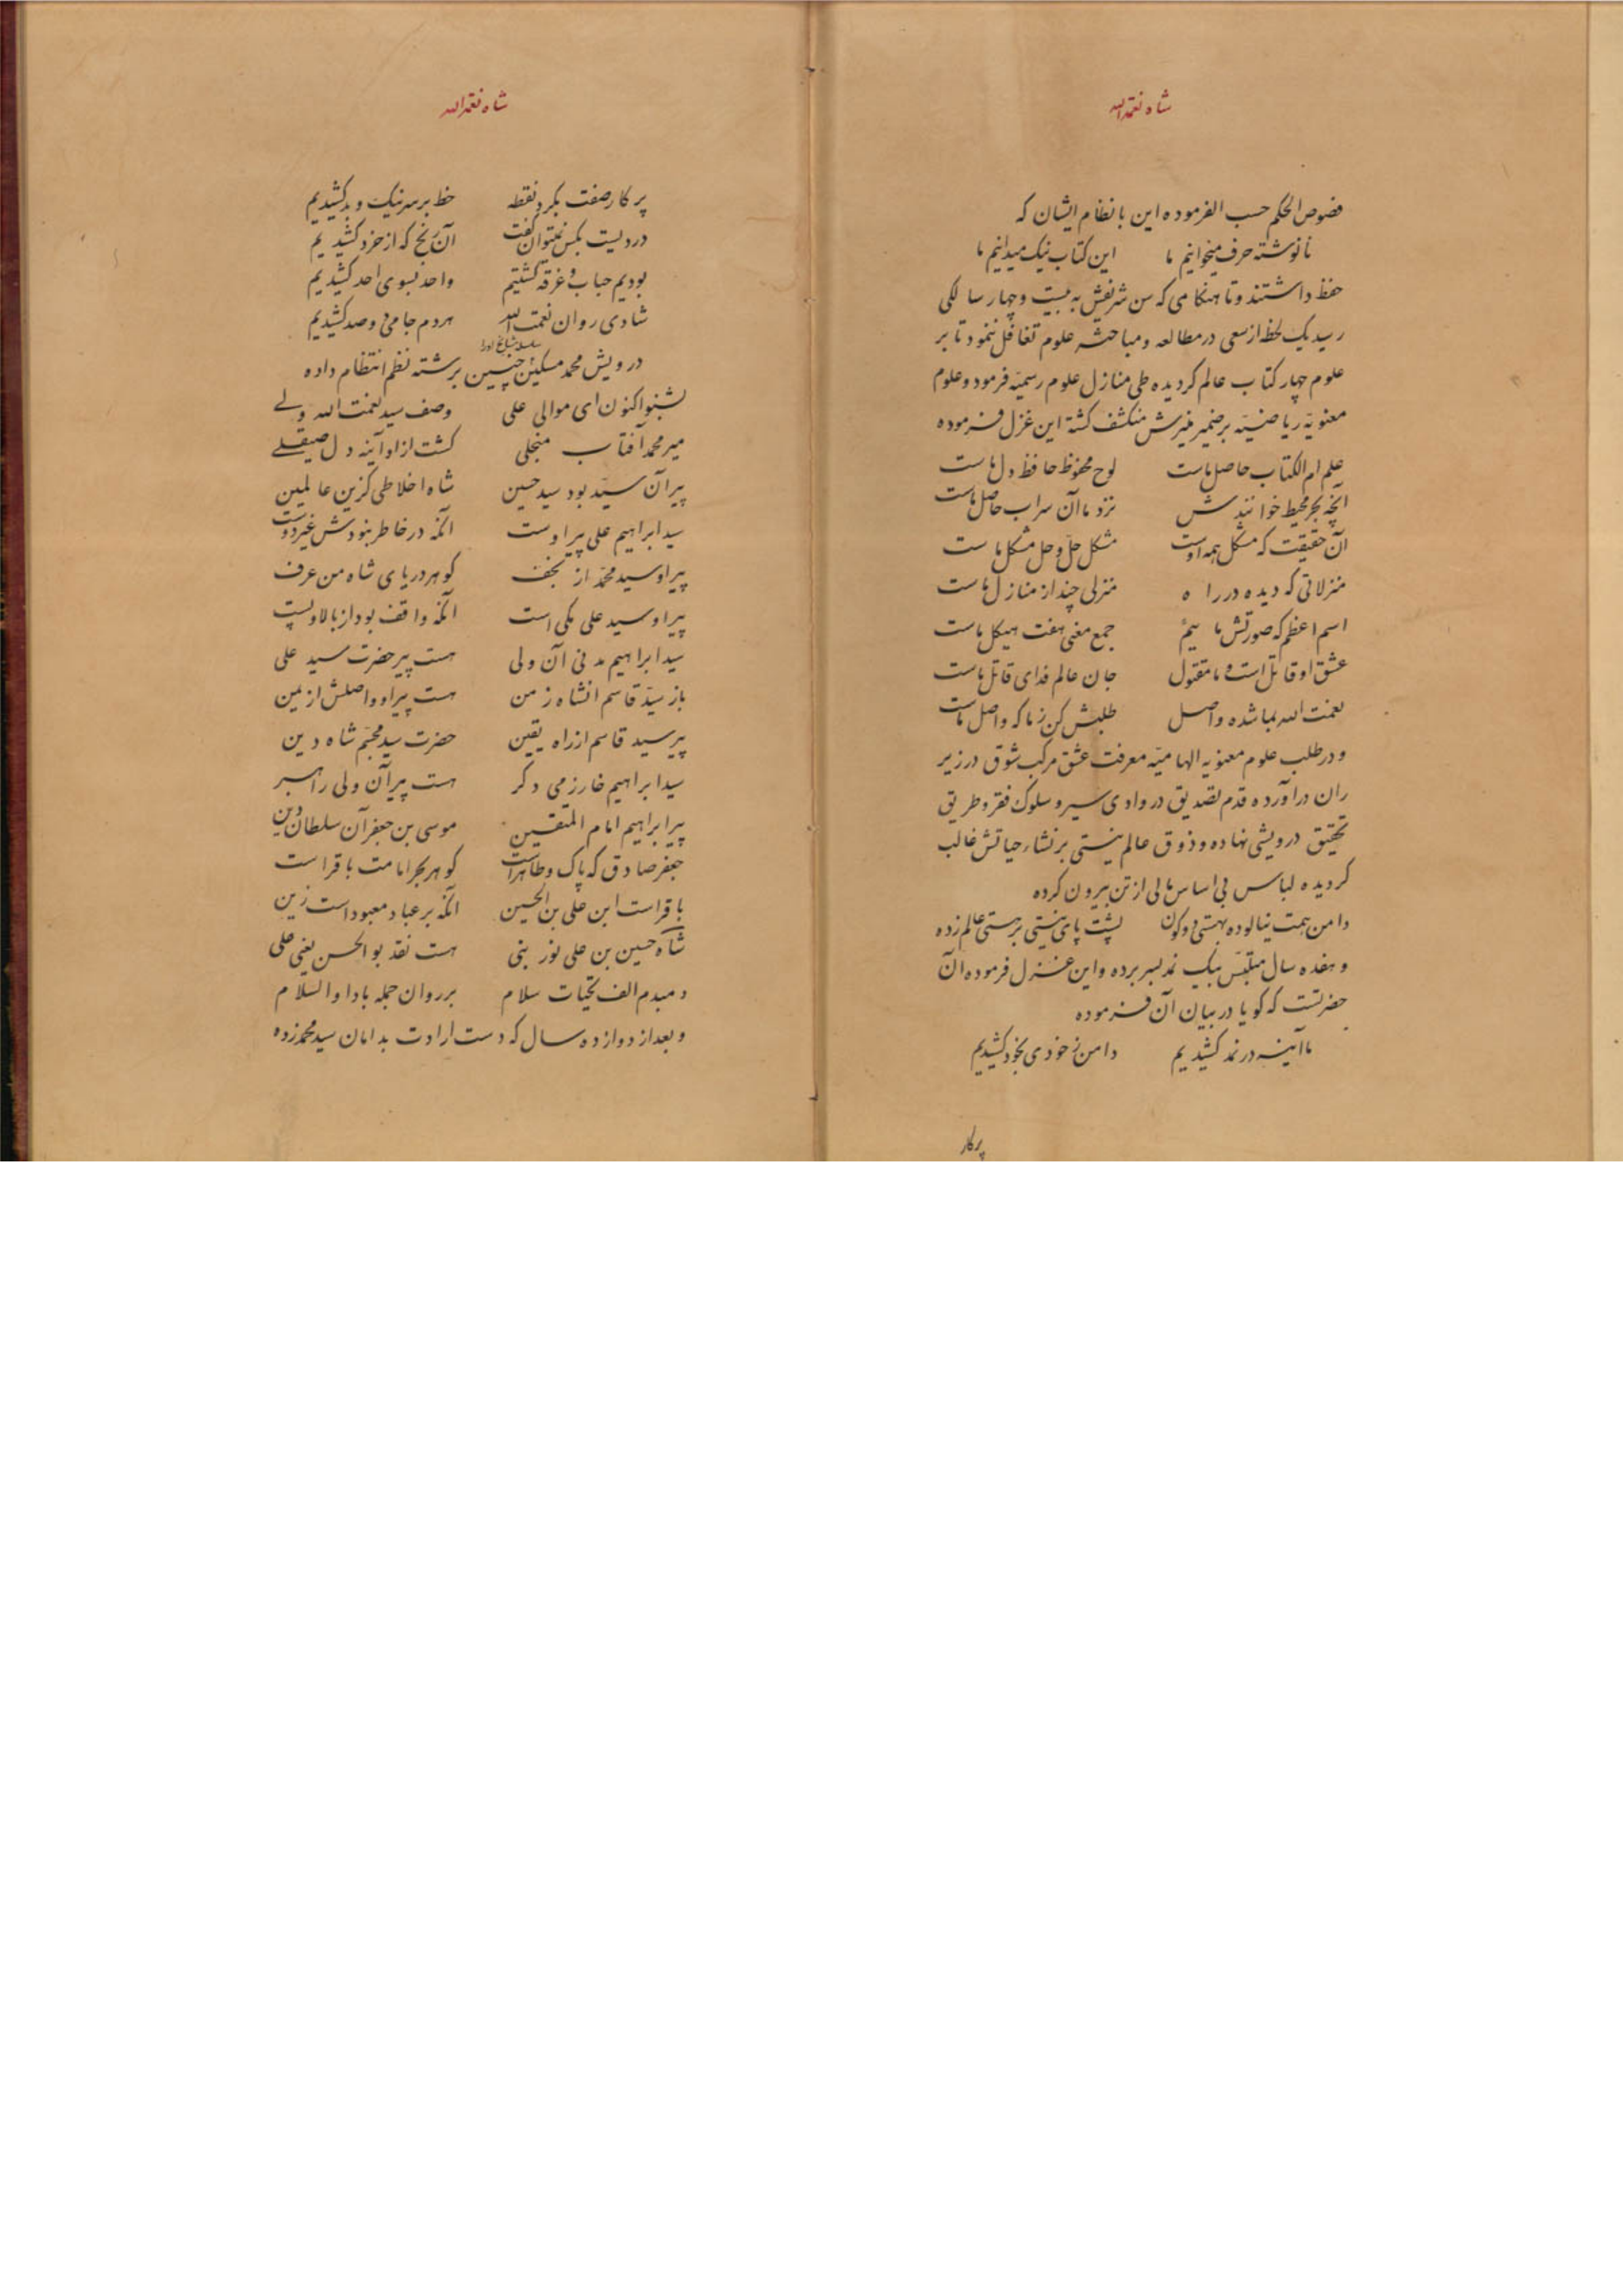 شاه نعمة الله
فصوص الحکم حسب الفرموده این با نظام ایشان که
نانوشته حرف میخوانیم ما این کتاب نیک میدانیم ما
حفظ داشتند و تا هنکامی که سن شریفش به بیست و چهار سالکی
رسید یک لحظ از سعی در مطالعه و مباحثه علوم تغافل ننمود تا بر
علوم چهار کتاب عالم کردیده طی منازل علوم رسمیّه فرمود و علوم
معنویّه ریاضیّه بر ضمیر منیرش منکشف کشته این غزل فرموده
علم ام الکتاب حاصل ماست لوح محفوظ حافظ دل ماست
آنچه بحر محیط خوانندش نزد ما آن سراب حاصل ماست
آن حقیقت که مشکل همه اوست مشکل حلّ و حل مشکل ماست
منزلاتی که دیده در راه منزلی چند از منازل ماست
اسم اعظم که صورتش مائیم جمع معنی هفت هیکل ماست
عشق او قاتل است و ما مقتول جان عالم فدای قاتل ماست
نعمت الله بما شده واصل طلبش کن ز ما که واصل ماست
و در طلب علوم معنویه الهامیّه معرفت عشق مرکب شوق در زیر
ران در آورده قدم تصدیق در وادی سیر و سلوک فقر و طریق
تحقیق درویشی نهاده و ذوق عالم نیستی بر نشاء حیاتش غالب
کردیده لباس بی اساس مالی از تن بیرون کرده
دامن همت نیالوده بهستی دو کون پشت پای نیستی بر هستی عالم زده
و هفده سال متلبّس بیک نمد بسر برده و این غزل فرموده آن
حضرتست که کویا در بیان آن فرموده
ما آینه در نمد کشیدیم دامن ز خودی بخود کشیدیم
پرکار
شاه نعمة الله
پرکار صفت بکرد نقطه خط بر سر نیک و بد کشیدیم
دردیست بکس نمیتوان کفت آن رنج که از خرد کشیدیم
بودیم حباب و غرقه کشتیم واحد بسوی احد کشیدیم
شادی روان نعمت الله هر دم جامی دو صد کشیدیم
سلسله مشایخ او را
درویش محمد مسکین چنین برشته نظم انتظام داده
بشنو اکنون ای موالی علی وصف سید نعمت الله ولی
میر محمد آفتاب منجلی کشت از او آینه دل صیقلی
پیر آن سیّد بود سید حسین شاه اخلاطی کزین عالمین
سید ابراهیم علی پیر اوست آنکه در خاطر نبودش غیر دوست
پیر او سید محمّد از نجف کوهر دریای شاه من عرف
پیر او سید علی مکی است آنکه واقف بود از بالا و پست
سید ابراهیم مدنی آن ولی هست پیر حضرت سید علی
باز سیّد قاسم آنشاه زمن هست پیر او و اصلش از یمن
پیر سید قاسم از راه یقین حضرت سید محبّم شاه دین
سید ابراهیم خارزمی دکر هست پیر آن ولی راهبر
پیر ابراهیم امام المتقین موسی بن جعفر آن سلطان دین
جعفر صادق که پاک و طاهر است کوهر بحر امامت باقر است
باقر است ابن علی بن الحسین آنکه بر عباد معبود است زین
شاه حسین بن علی نور نبی هست نقد بوالحسن یعنی علی
دمبدم الف تحیات سلام بر روان جمله بادا والسلام
و بعد از دوازده سال که دست ارادت بدامان سید محمد زده